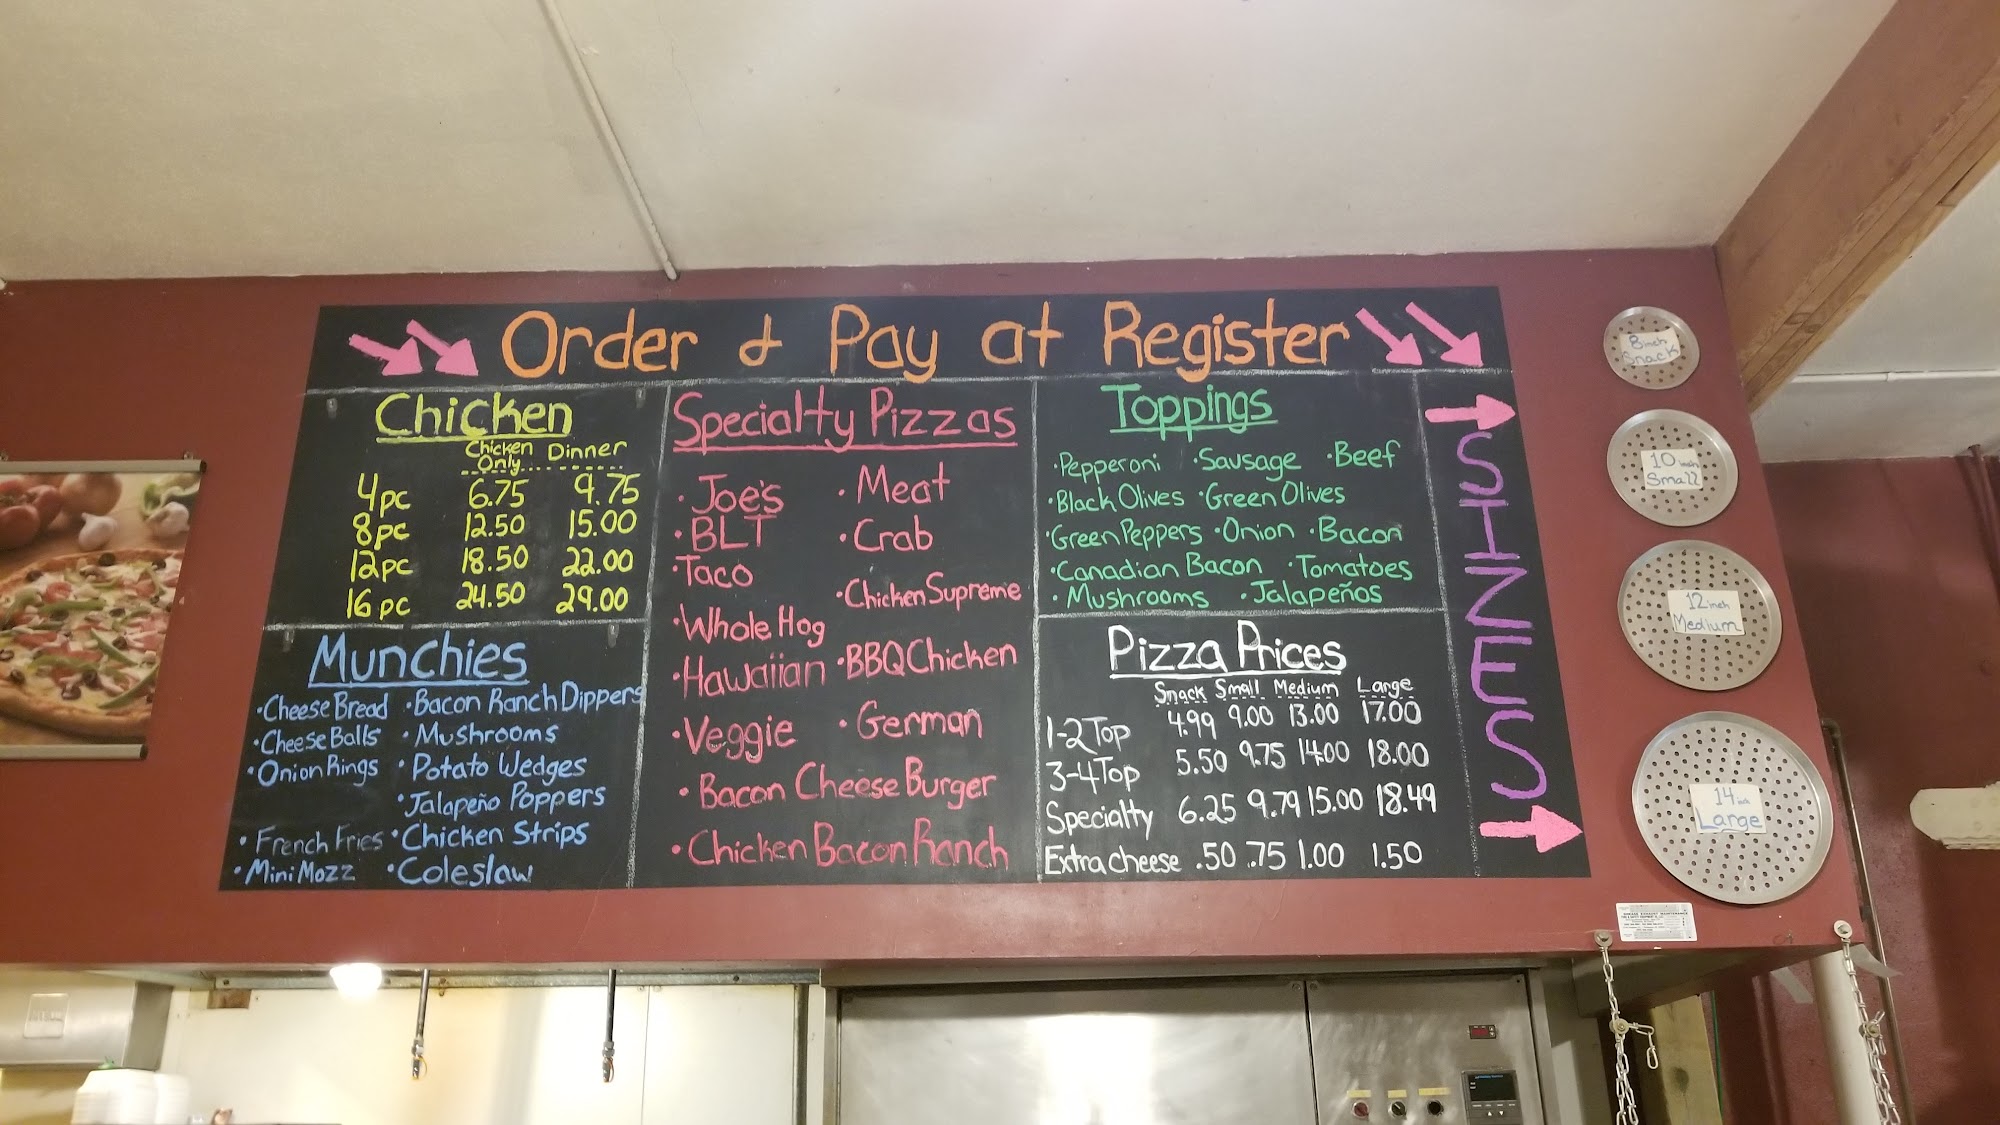 Order & Pay at Register
Chicken
Chicken Only Dinner
4pc 6.75 9.75
8pc 12.50 15.00
12pc 18.50 22.00
16pc 24.50 29.00
Munchies
·Cheese Bread ·Bacon Ranch Dippers
·Cheese Balls ·Mushrooms
·Onion Rings ·Potato Wedges
·Jalapeño Poppers
·French Fries ·Chicken Strips
·Mini Mozz ·Coleslaw
Specialty Pizzas
·Joe's ·Meat
·BLT ·Crab
·Taco
·Chicken Supreme
·Whole Hog
·Hawaiian ·BBQ Chicken
·Veggie ·German
·Bacon Cheese Burger
·Chicken Bacon Ranch
Toppings
·Pepperoni ·Sausage ·Beef
·Black Olives ·Green Olives
·Green Peppers ·Onion ·Bacon
·Canadian Bacon ·Tomatoes
·Mushrooms ·Jalapeños
Pizza Prices
Snack Small Medium Large
1-2 Top 4.99 9.00 13.00 17.00
3-4 Top 5.50 9.75 14.00 18.00
Specialty 6.25 9.79 15.00 18.49
Extra cheese .50 .75 1.00 1.50
SIZES
8inch
Snack
10 inch
Small
12 inch
Medium
14 inch
Large